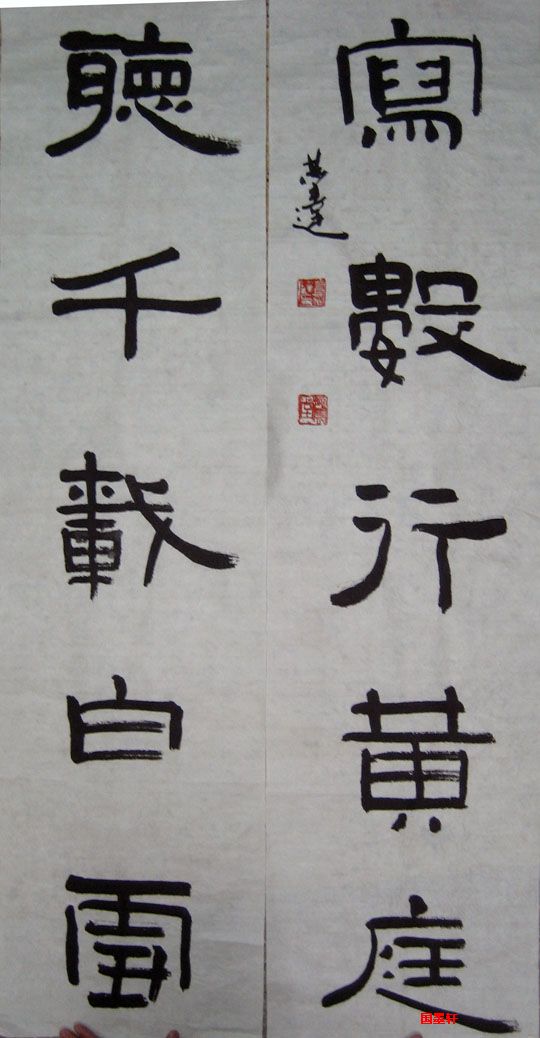 寫數行黄庭
聽千載白雪
国墨轩